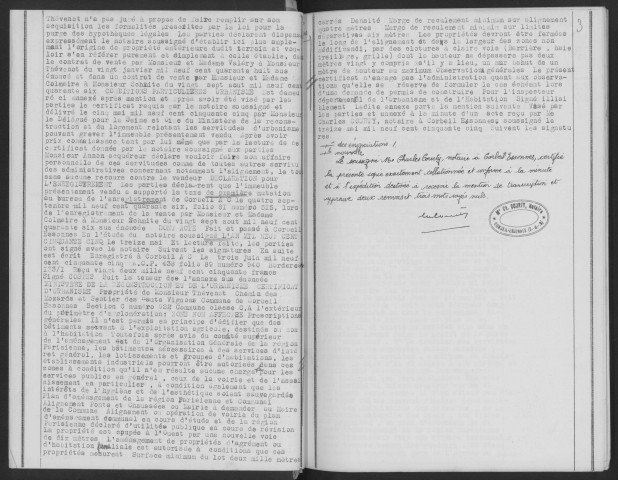 Thévenot n'a pas jugé à propos de faire remplir sur son
acquisition les formalités prescrites par la loi pour la
purge des hypothèques légales. Les parties déclarent dispenser
expressément le notaire soussigné d'établir ici plus ample-
ment l'origine de propriété antérieure dudit terrain et vou-
loir s'en référer purement et simplement à celle établie, dans
le contrat de vente par Monsieur et Madame Valery à Monsieur
Thévenot du vingt janvier mil neuf cent quarante huit sus
énoncé et dans un contrat de vente par Monsieur et Madame
Colmaire à Monsieur Benoite du vingt sept août mil neuf cent
quarante six CONDITIONS PARTICULIERES URBANISME Est demeu
ré ci annexé après mention et après avoir été visé par les
parties le certificat requis par le notaire soussigné et
délivré le cinq mai mil neuf cent cinquante cinq par Monsieur
le Délégué pour la Seine et Oise du Ministère de la recons-
truction et du logement relatant les servitudes d'urbanisme
pouvant grever l'immeuble présentement vendu après avoir
pris connaissance tant par lui même que par la lecture de ce
certificat donnée par le notaire soussigné aux parties
Monsieur acquéreur déclare vouloir faire son affaire
personnelle de ces servitudes comme de toutes autres servitu
des administratives concernant notamment l'alignement, le tout
sans aucune recours contre le vendeur DECLARATION POUR
L'ENREGISTREMENT Les parties déclarent que l'immeuble
présentement vendu a supporté la taxe de première mutation
au bureau de l'enregistrement de Corbeil A C le quatre sep-
tembre mil neuf cent quarante six, folio 51 numéro 515, lors
de l'enregistrement de la vente par Monsieur et Madame
Colmaire à Monsieur Benoite du vingt sept août mil neuf cent
quarante six sus énoncée DONT ACTE Fait et passé à Corbeil
Essonnes En l'Etude du notaire soussigné L'AN MIL NEUF CENT
CINQUANTE CINQ Le treize mai Et lecture faite, les parties
ont signé avec le notaire Suivent les signatures En suite
est écrit Enregistré à Corbeil A C le trois juin mil neuf
cent cinquante cinq A.C.P. 438 folio 89 numéro 940 Bordereau
Reçu vingt deux mille neuf cent cinquante francs
Suit la teneur de l'annexe sus énoncée
MINISTERE DE LA RECONSTRUCTION ET DE L'URBANISME
Propriété de Monsieur Thévenot Chemin des
Commune de Corbeil
Essonnes Section C numéro
du périmètre d'agglomération: ZONE NON AFFECTEE Prescriptions
générales Il n'est permis en principe d'édifier que des
bâtiments servant à l'exploitation agricole, destinés ou non
à l'habitation Toutefois après avis du comité supérieur
de l'aménagement et de l'Organisation Générale de la région
Parisienne, les bâtiments nécessaires à des services d'inté
rêt général, les lotissements et groupes d'habitations, les
établissements industriels pourront être autorisés dans ces
zones à condition qu'il n'en résulte aucune charge pour les
services publics en général, ceux de la voirie et de l'assai
nissement en particulier, à condition également que les
intérêts de l'hygiène et de l'esthétique soient sauvegardés
Plan d'aménagement de la région Parisienne et Communal
Alignement Ponts et Chaussées ou Mairie à demander au Maire
de la Commune Alignement ou opération de voirie du plan
d'aménagement communal en cours d'étude et de la région
Parisienne déclaré d'utilité publique en cours de révision
La propriété est coupée à l'Ouest par une nouvelle voie
de dix mètres L'aménagement de propriétés d'agrément ou
d'habitation familiale est autorisée à conditions que ces
propriétés mesurent Surface minimum du lot deux mille mètres
3
carrés Densité Marge de reculement minimum sur alignement
quatre mètres Marge de reculement minimum sur limites
séparatives six mètres Les propriétés devront être fermées
le long de l'alignement et dans la largeur des zones non
aedificandi, par des clôtures à claire voie (barrière, haie
treillage, grille) dont la hauteur ne dépassera pas deux
mètres vingt y compris s'il y a lieu, un mur bahut de un
mètre de hauteur au maximum Observations générales Le présent
certificat n'engage pas l'administration quant aux observa-
tions qu'elle se réserve de formuler le cas échéant lors
d'une demande de permis de construire Pour l'inspecteur
départemental de l'Urbanisme et de l'Habitation Signé illisi
blement Ladite annexe porte la mention suivante Visé par
les parties et annexé à la minute d'un acte reçu par Me
Charles COUNTY, notaire à Corbeil Essonnes, soussigné le
treize mai mil neuf cent cinquante cinq Suivent les signatu
res
Le soussigné Me Charles County, notaire à Corbeil Essonnes, certifie
la présente copie exactement collationnée et conforme à la minute
et à l'expédition destinée à recevoir la mention de transcription et